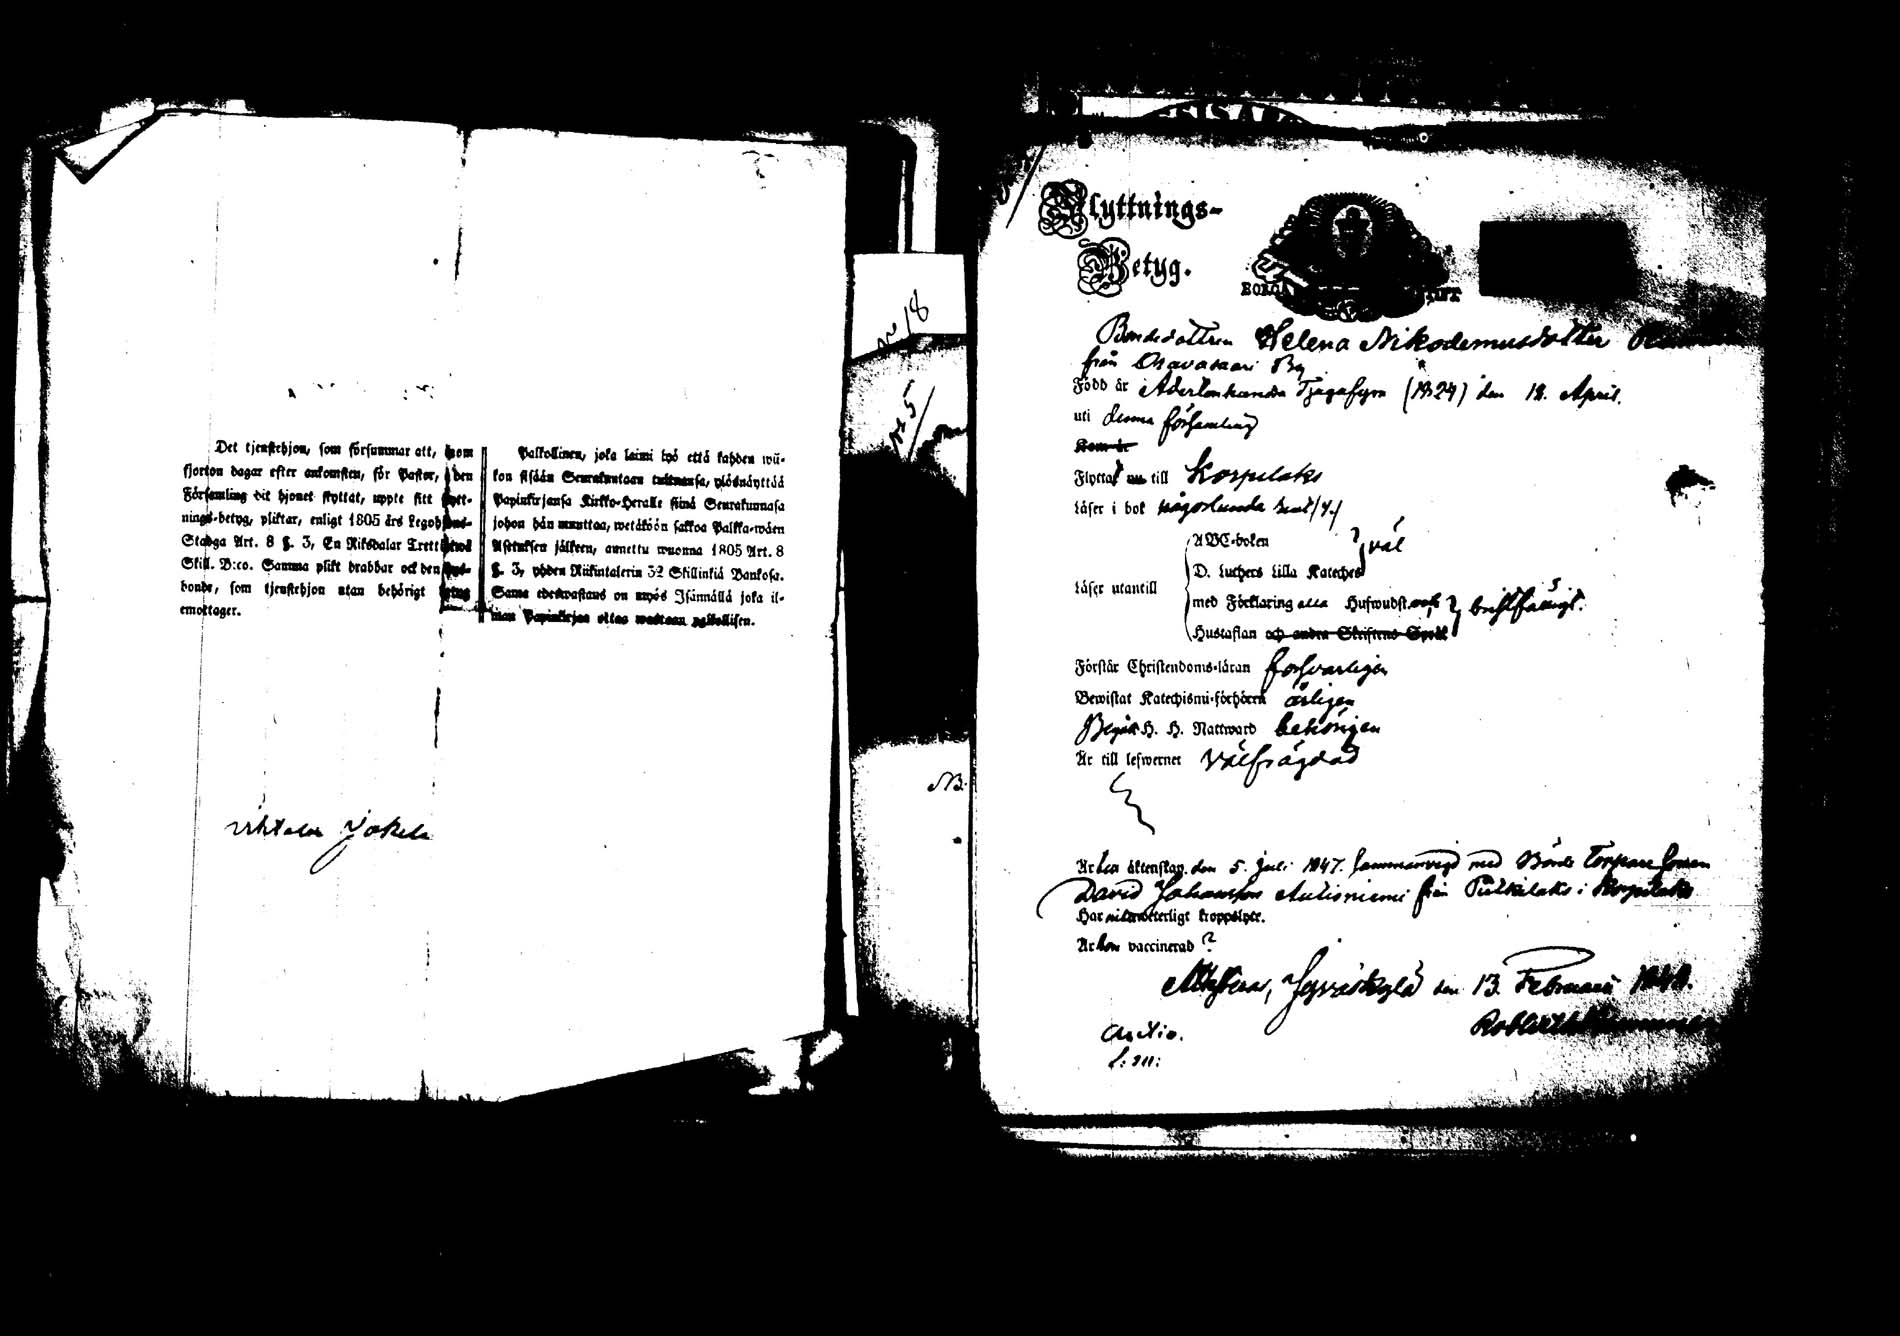 Det tjenstehjon, som försummar att, inom
fjorton dagar efter ankomsten, för Pastor, i den
Församling dit hjonet flyttat, uppte sitt flytt-
nings-betyg, pliktar, enligt 1805 års Legohjons-
Stadga Art. 8 §. 3, En Riksdalar Trettiotwå
Skill. B:co. Samma plikt drabbar ock den hus-
bonde, som tjenstehjon utan behörigt betyg
emottager.
Palkollinen, joka laimi lyö että kahden wii-
kon sisään Seurakuntaan tultuansa, ylösnäyttää
Papinkirjansa Kirkko-Heralle siinä Seurakunnasa
johon hän muuttaa, wetäköön sakkoa Palkka-wäen
Asetuksen jälkeen, annettu wuonna 1805 Art. 8
§. 3, yhden Riikintalerin 32 Skillinkiä Bankosa.
Sama edeswastaus on myös Isännällä joka il-
man Papinkirjaa ottaa wastaan palkollisen.
Jokela
18
N 5
NB.
Flyttnings-
Betyg.
Bondedottren Helena Nikodemusdotter
från Oravasaari By
Född år Adertonhundra Tjugufyra (1824) den 18. April.
uti denna församling
Kom år
Flyttar nu till Korpilaks
Läser i bok någorlunda rent
ABC-boken
D. Luthers Lilla Kateches väl
Läser utantill
med Förklaring alla Hufwudst. och bristfälligt.
Hustaflan och andra Skriftens Språk
Förstår Christendoms-läran försvarligen
Bewistat Katechismi-förhören årligen
Begått H. H. Nattward behörigen
Är till lefwernet välfrägdad
Är i äktenskap. den 5. Juli 1847. sammanvigd med Torpare Sonen
David Johansson Aulisniemi från Putkilaks i Korpilaks
Har weterligt kroppslyte.
Är hon vaccinerad ?
Jyväskylä den 13. Februarii 1848.
Robert